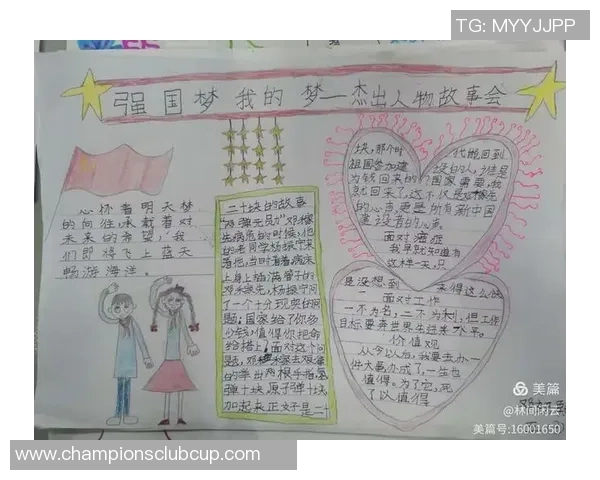 TG: MYYJJPP
强国梦 我的 梦—杰出人物故事会
心怀着明天梦
的向往,承载着对
未来的希望,我
们即将飞上蓝天
畅游海洋。
二十块的故事
"两弹元勋"邓稼先
生病危的时候,他
的老同学杨振宁来
看他,当时看着病床
上身上插满管子的
邓稼先,杨振宁问
了一个十分现实的问
题:国家给了你多
少钱,值得你把命
给搭上。面对这个问
题,邓稼先艰难
的举出两根手指氢
弹十块,原子弹十块
加起来正好是二十
块,那个时代能回到
祖国参加建设的人,谁是
为钱回来的?国家需要,我
就回来了,这不仅是邓稼先
的心声更是所有新中国
建设者的心声
面对癌症
我早就知道有
这样一天,只
是没想到来得这么快
面对工作
一不为名,二不为利,但工作
目标要奔世界先进水平。
价值观
从今以后,我要去办一
件大事,办成了,一生也
值得。为了它,死
了以值得
美篇
@林间闲云
美篇号:16001650
www.championsclubcup.com